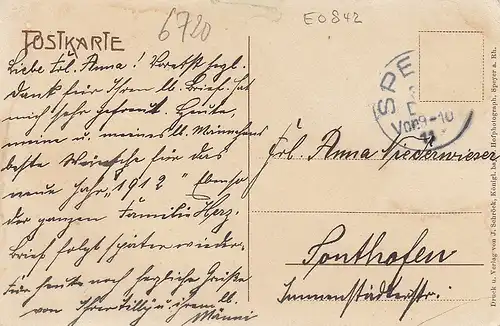 6720
E0842
POSTKARTE
Liebe Frl. Anna! Vorerst hzgl.
Dank für Ihren lb. Brief. hat
mich sehr gefreut. Heute,
meine u. meines lb. Männchens
beste Wünsche für das
neue Jahr „1912" Ebenso
der ganzen Familie Herz.
Brief folgt später wieder.
Für heute noch herzliche Grüße
von Ihrer Tilly u. ihrem lb.
Männi
SPE
Vor 9-10
11
Frl. Anna Niederwieser
Sonthofen
Immenstädterstr.
Druck u. Verlag von J. Schröck, Königl. Hofphotograph, Speyer a. Rh.